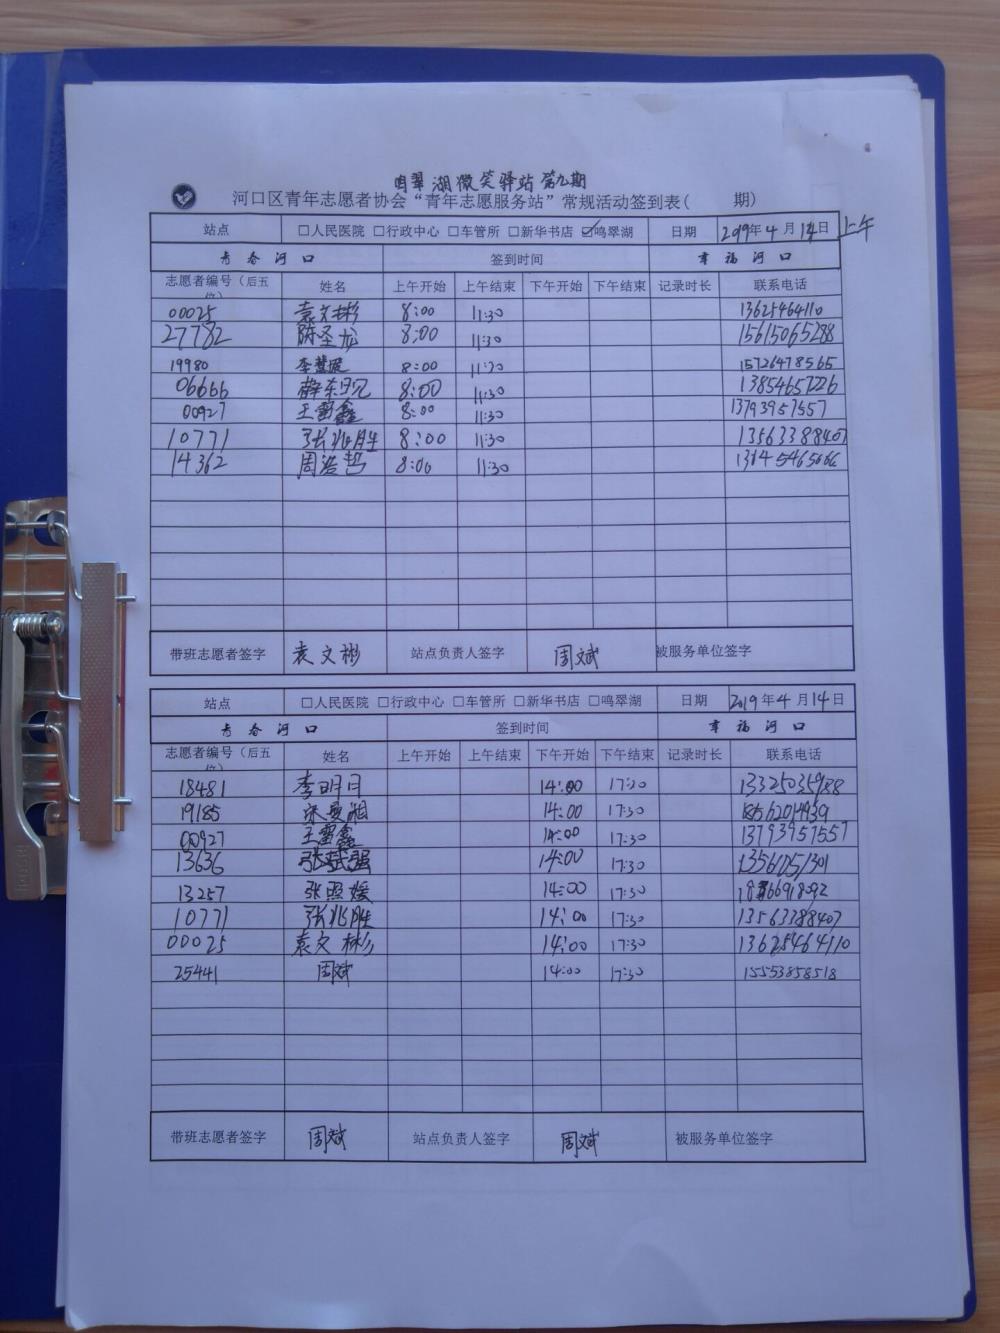 鸣翠湖微笑驿站第九期
河口区青年志愿者协会“青年志愿服务站”常规活动签到表( 期)
站点 □人民医院 □行政中心 □车管所 □新华书店 ☑鸣翠湖 日期 2019年4月14日 上午
青春河口 签到时间 幸福河口
志愿者编号（后五位） 姓名 上午开始 上午结束 下午开始 下午结束 记录时长 联系电话
00025 袁文彬 8:00 11:30 13625464110
27782 陈圣龙 8:00 11:30 15615065288
19980 李慧 8:00 11:30 15726478565
06666 薛东 8:00 11:30 13854657226
00927 王雷鑫 8:00 11:30 13793957557
10771 张兆胜 8:00 11:30 13563388407
14362 周浩哲 8:00 11:30
带班志愿者签字 袁文彬 站点负责人签字 周斌 被服务单位签字
站点 □人民医院 □行政中心 □车管所 □新华书店 □鸣翠湖 日期 2019年4月14日
青春河口 签到时间 幸福河口
志愿者编号（后五位） 姓名 上午开始 上午结束 下午开始 下午结束 记录时长 联系电话
18481 李明日 14:00 17:30
19185 14:00 17:30
00927 王雷鑫 14:00 17:30 13793957557
13636 张 强 14:00 17:30
13257 张照媛 14:00 17:30
10771 张兆胜 14:00 17:30 13563388407
00025 袁文彬 14:00 17:30 13625464110
25441 周斌 14:00 17:30 15553858518
带班志愿者签字 周斌 站点负责人签字 周斌 被服务单位签字